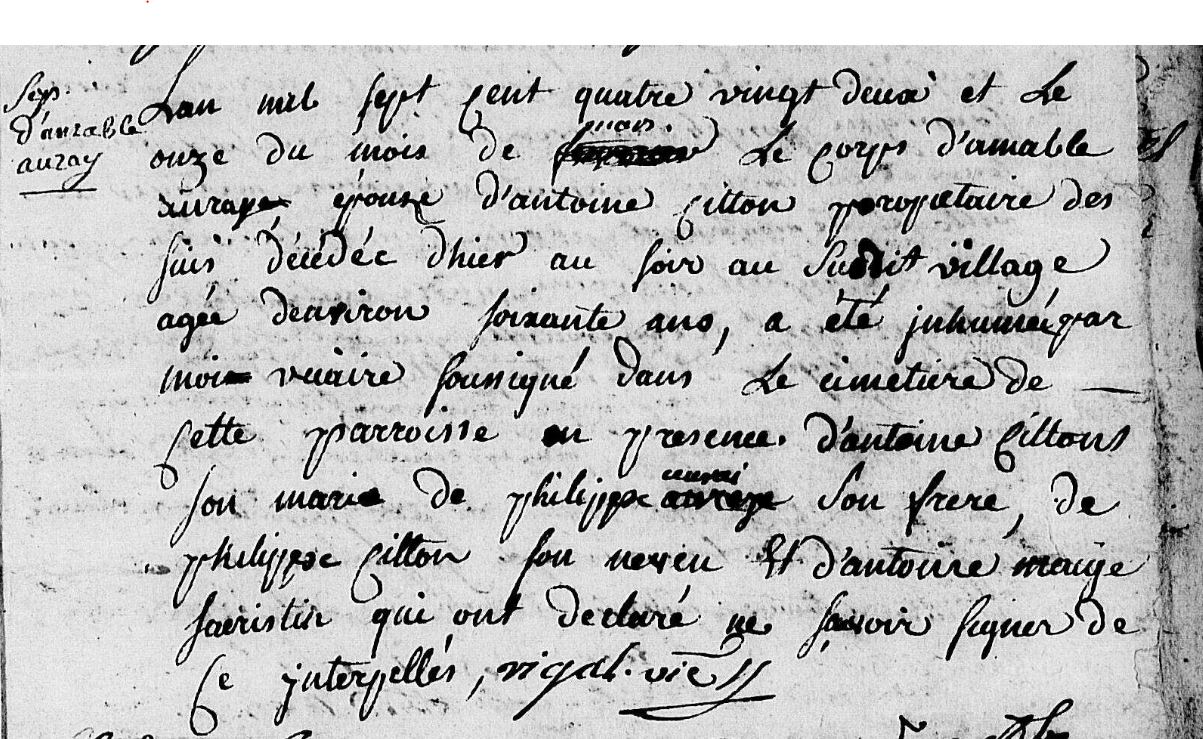 Sep.
d'amable
auray
Lan mil sept cent quatre vingt deux et Le
mars.
onze du mois de Le corps d'amable
auraye épouse d'antoine Citton propietaire des
suis décédée d'hier au soir au Susdit village
agée denviron soixante ans, a été inhumée par
moi vicaire soussigné dans Le cimetiere de
Cette parroisse en presence d'antoine Cittons
aurai
son marie de philippe son frere, de
philippe Citton son neveu Et d'antoine maige
sacristin qui ont declaré ne savoir signer de
Ce interpellés, vigal. vic